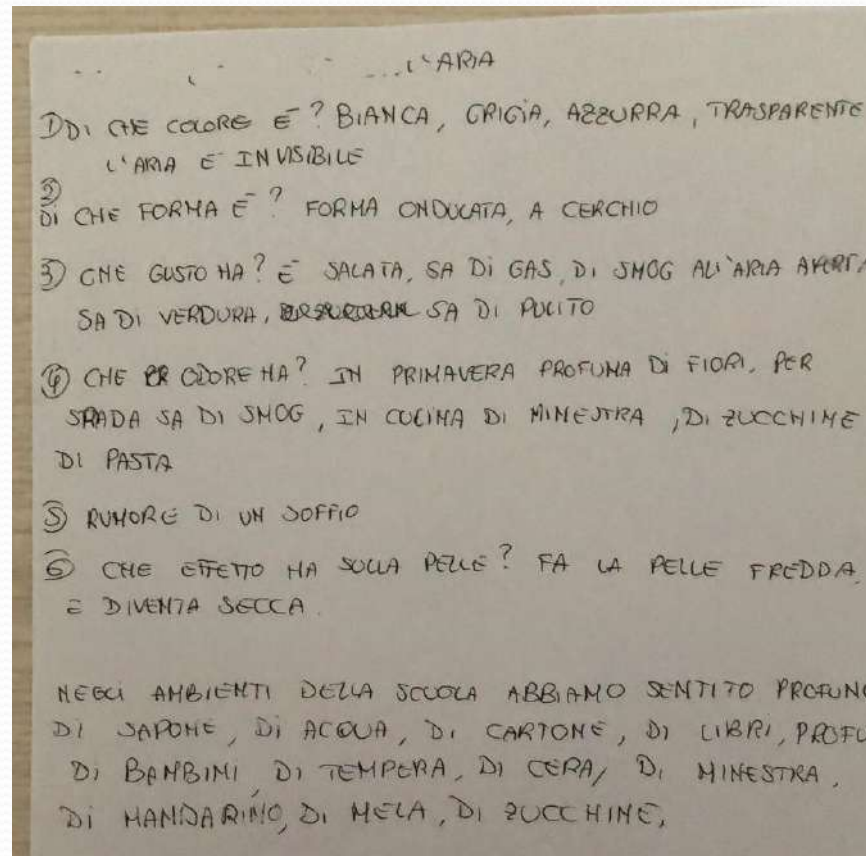 L'ARIA
1) DI CHE COLORE È? BIANCA, GRIGIA, AZZURRA, TRASPARENTE
L'ARIA È INVISIBILE
2)
DI CHE FORMA È? FORMA ONDULATA, A CERCHIO
3) CHE GUSTO HA? È SALATA, SA DI GAS, DI SMOG ALL'ARIA APERTA
SA DI VERDURA, SA DI PULITO
4) CHE ODORE HA? IN PRIMAVERA PROFUMA DI FIORI, PER
STRADA SA DI SMOG, IN CUCINA DI MINESTRA, DI ZUCCHINE
DI PASTA
5) RUMORE DI UN SOFFIO
6) CHE EFFETTO HA SULLA PELLE? FA LA PELLE FREDDA
E DIVENTA SECCA.
NEGLI AMBIENTI DELLA SCUOLA ABBIAMO SENTITO
DI SAPONE, DI ACQUA, DI CARTONE, DI LIBRI,
DI BAMBINI, DI TEMPERA, DI CERA, DI MINESTRA,
DI MANDARINO, DI MELA, DI ZUCCHINE,